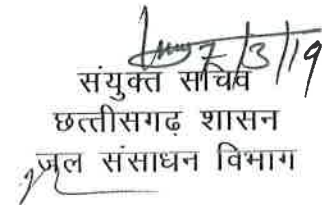 7/3/19
संयुक्त सचिव
छत्तीसगढ़ शासन
जल संसाधन विभाग